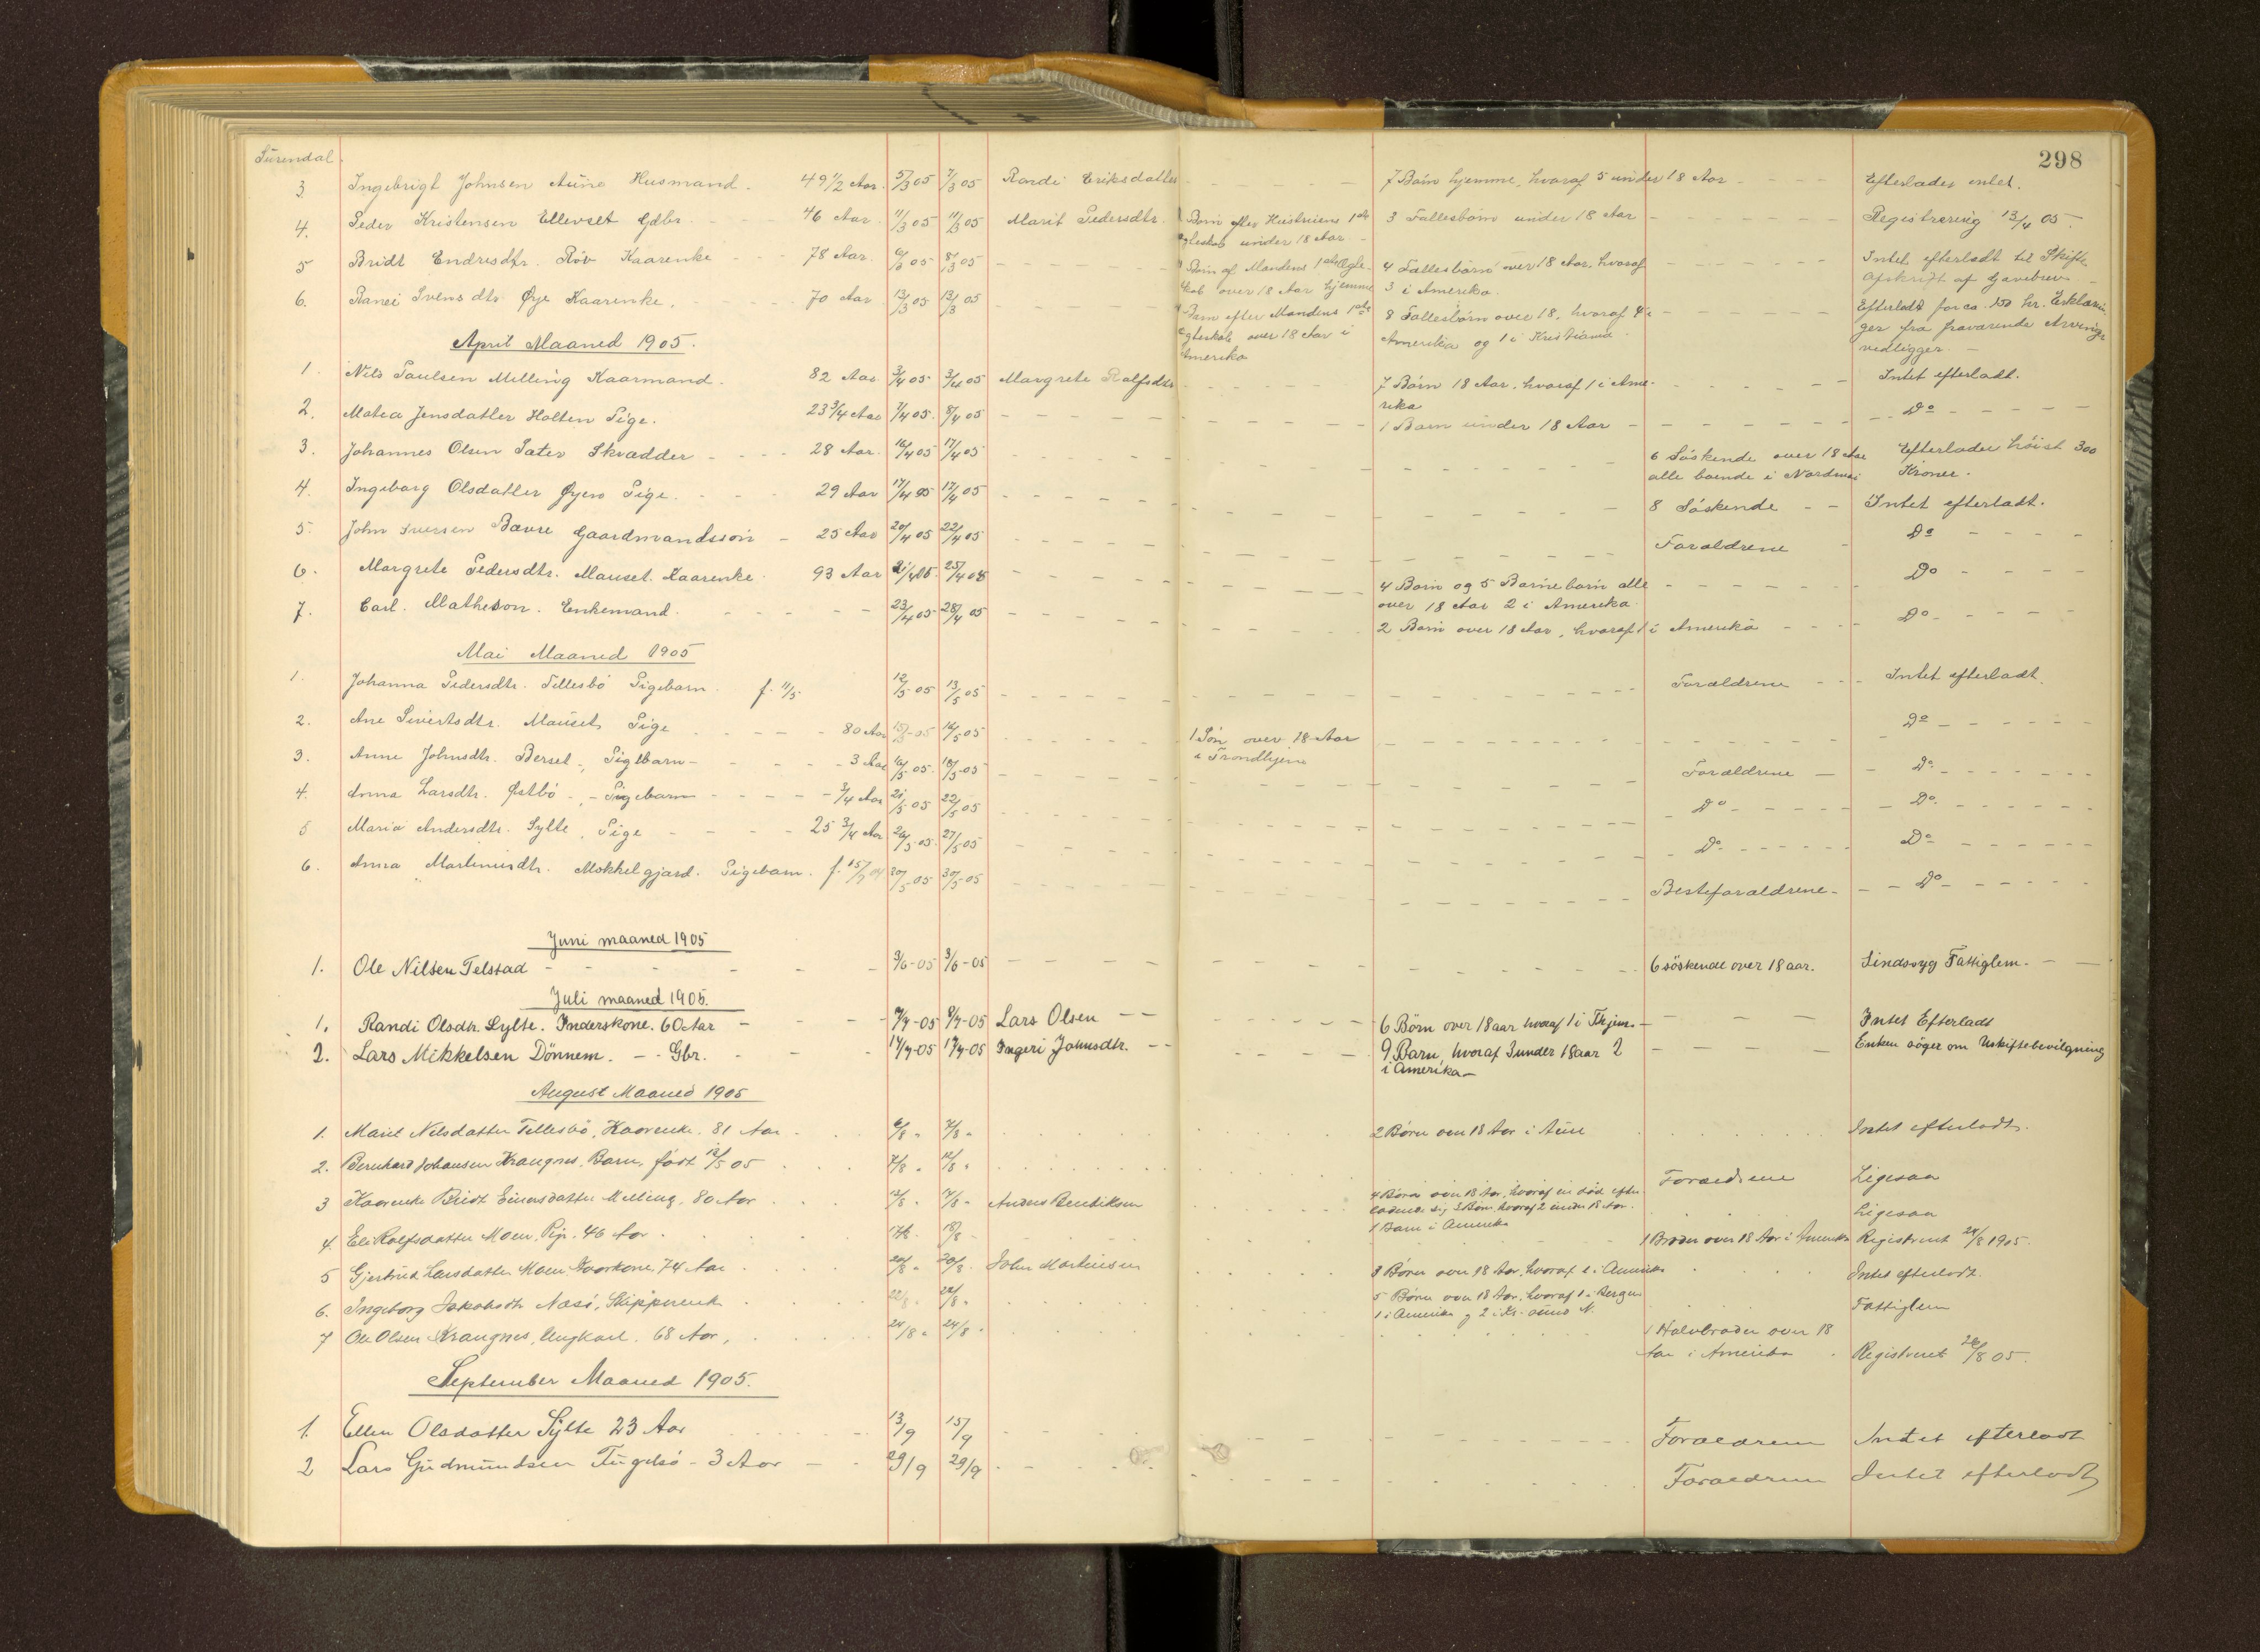 298
Surendal
3. Ingebrigt Johnsen Aune Husmand. 49 1/2 Aar. 5/3 05 7/3 05 Randi Eriksdatter 7 Børn hjemme, hvoraf 5 under 18 Aar Efterlader intet.
4. Peder Kristensen Ellevset Gdbr. 46 Aar 11/3 05 11/3 05 Marit Pedersdtr. Børn efter Hustruens 1ste 3 Fællesbørn under 18 Aar Registrering 13/4 05.
Egteskab under 18 Aar
5 Bridt Endresdtr. Röv Kaarenke 78 Aar. 6/3 05 8/3 05 Børn af Mandens 1ste Ægte- 4 Fællesbørn over 18 Aar, hvoraf Intet efterladt til Skifte
skab over 18 Aar hjemme 3 i Amerika. Afskrift af Gavebrev
6. Ranei Svensdtr Øye Kaarenke. 70 Aar 13/3 05 13/3 05 Barn efter Mandens 1ste 8 Fællesbørn over 18, hvoraf 4 i Efterladt for ca. 150 kr. Erklærin-
Egteskab over 18 Aar i Amerika og 1 i Kristiania ger fra fraværende Arvinger
Amerika vedligger.
April Maaned 1905.
1. Nils Paulsen Melling Kaarmand. 82 Aar 3/4 05 3/4 05 Margrete Rolfsdtr 7 Børn 18 Aar, hvoraf 1 i Ame- Intet efterladt.
rika
2. Matea Jensdatter Holten Pige. 23 3/4 Aar 7/4 05. 8/4 05 1 Barn under 18 Aar Do
3. Johannes Olsen Sæter Skrædder 28 Aar. 16/4 05 17/4 05 6 Söskende over 18 Aar Efterlader höist 300
alle boende i Nordmøre Kroner.
4. Ingeborg Olsdatter Øyen Pige. 29 Aar 17/4 05 17/4 05 8 Söskende Intet efterladt.
5. John Iversen Bævre Gaardmandssön 25 Aar 20/4 05 22/4 05 Forældrene Do
6. Margrete Pedersdtr. Mauset. Kaarenke. 93 Aar 21/4 05. 25/4 05 4 Børn og 5 Barnebarn alle Do
over 18 Aar 2 i Amerika
7. Carl. Matheson. Enkemand. 23/4 05 28/4 05 2 Børn over 18 Aar, hvoraf 1 i Amerika Do
Mai Maaned 1905
1. Johanna Pedersdtr. Tellesbö Pigebarn. f. 11/5 12/5 05 13/5 05 Forældrene Intet efterladt.
2. Ane Sivertsdtr. Mauset, Pige 80 Aar 15/5-05 16/5 05 1 Sön over 18 Aar Do
i Trondhjem
3. Anne Johnsdtr. Bersel, Pigebarn 3 Aar 16/5 05. 18/5-05 Forældrene Do
4. Anna Larsdtr. Østbö, Pigebarn 3/4 Aar 21/5-05 22/5 05 Do Do
5 Maria Andersdtr. Sylte, Pige 25 3/4 Aar 26/5-05 27/5-05 Do Do
6. Anna Martinusdtr. Mokkelgjærd. Pigebarn. f. 15/7 04 30/5-05 30/5-05 Besteforældrene Do
Juni maaned 1905
1. Ole Nilsen Telstad 3/6-05 3/6-05 6 söskende over 18 aar. Sindssyg Fattiglem.
Juli maaned 1905.
1. Randi Olsdtr. Sylte. Inderskone. 60 Aar 7/7-05 8/7-05 Lars Olsen 6 Børn over 18 aar hvoraf 1 i Thjem. Intet Efterladt
2. Lars Mikkelsen Dönnem. Gbr. 17/7-05 17/7-05 Ingeri Johnsdtr. 9 Barn, hvoraf 3 under 18 aar 2 Enken söger om Uskiftebevilgning
i Amerika
August Maaned 1905
1. Marit Nilsdatter Tellesbö, Kaarenke. 81 Aar 6/8 " 7/8 " 2 Børn over 18 Aar i Aure Intet efterladt.
2. Bernhard Johansen Krangnes, Barn, født 12/5 05 7/8 " 12/8 " Forældrene Ligesaa
3 Kaarenke Bridt Einarsdatter Melling, 80 Aar 12/8 " 17/8 " Anders Bendiksen 4 Børn over 18 Aar, hvoraf en död efter- Ligesaa
ladende sig 3 Børn, hvoraf 2 under 18 Aar.
1 Barn i Amerika
4. Eli Rolfsdatter Moen, Pige. 46 Aar 17/8. 18/8 1 Broder over 18 Aar i Amerika Registreret 24/8 1905.
5 Gjertrud Larsdatter Moen Kaarkone, 74 Aar 20/8 " 20/8. John Martinsen 8 Børn over 18 Aar, hvoraf 1 i Amerika Intet efterladt.
6. Ingeborg Jakobsdtr Næsi, Skipperenk 22/8 " 22/8 " 5 Børn over 18 Aar, hvoraf 1 i Bergen Fattiglem
1 i Amerika og 2 i Kr.sund N.
7 Ole Olsen Krangnes, Ungkarl. 68 Aar, 24/8 " 24/8 " 1 Halvbroder over 18
Aar i Amerika Registreret 26/8 05.
September Maaned 1905.
1. Ellen Olsdatter Sylte 23 Aar 13/9 15/9 Forældrene Intet efterladt
2 Lars Gudmundsen Fugelsö 3 Aar 29/9 29/9 Forældrene Intet efterladt